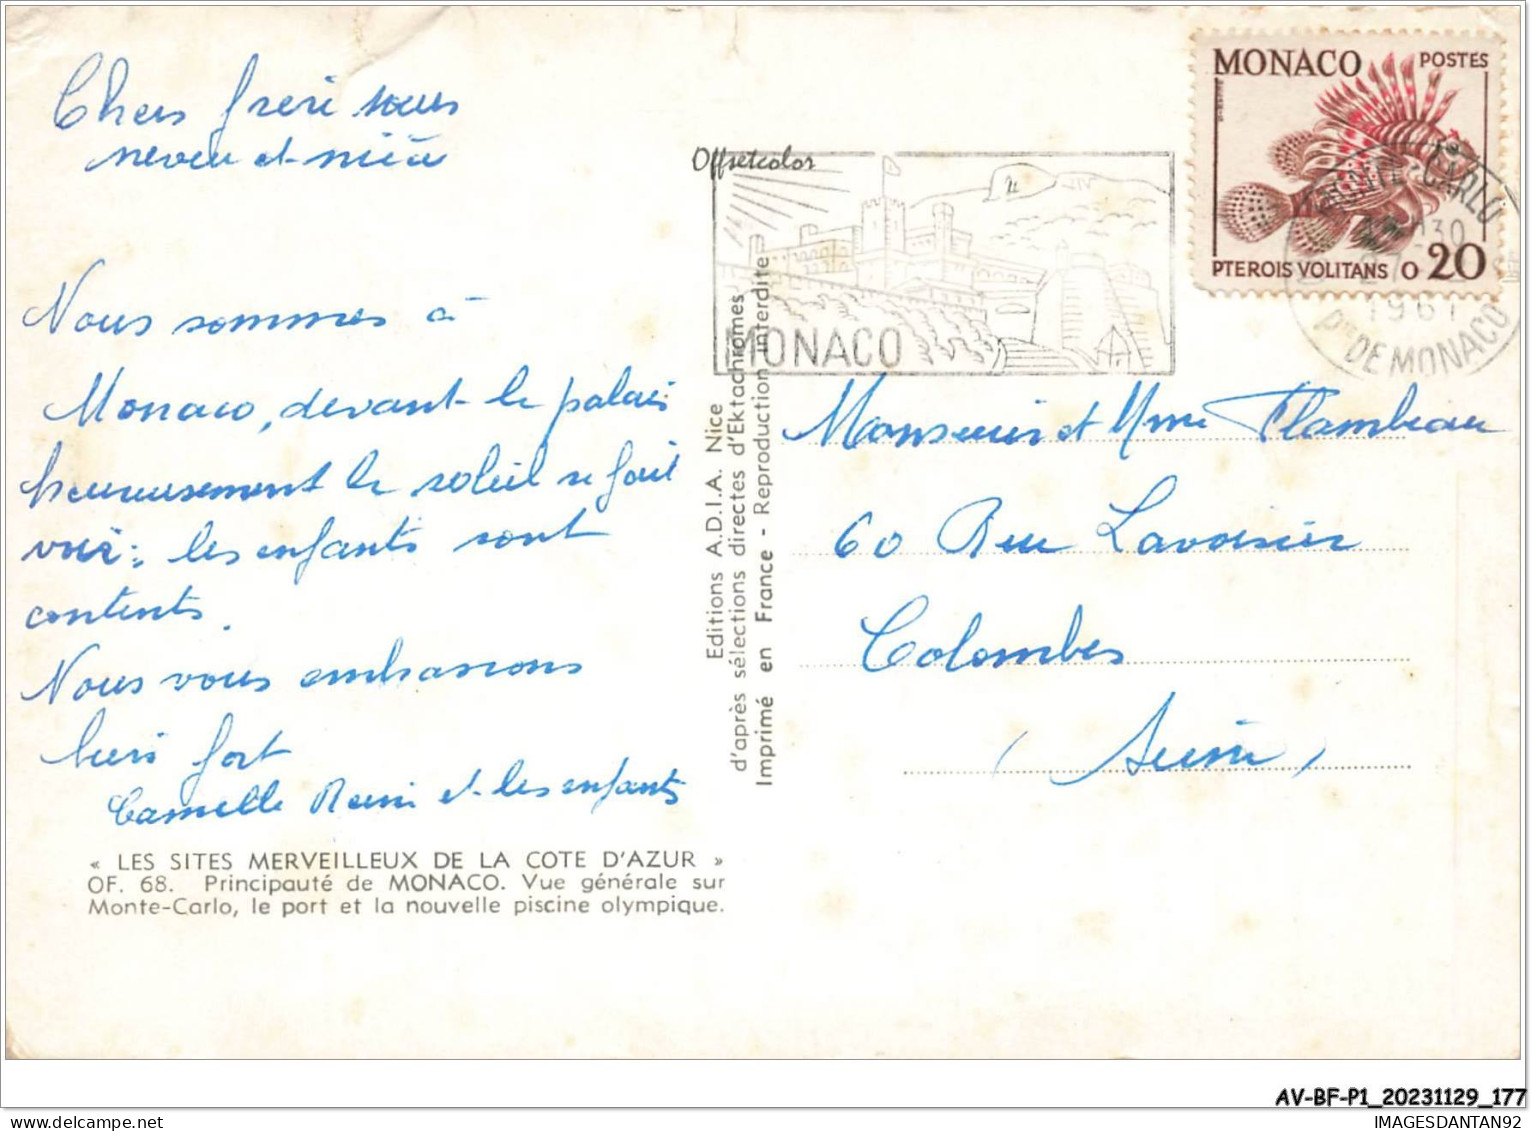 Chers frère soeur
neveu et nièce
Nous sommes à
Monaco, devant le palais
heureusement le soleil se fait
voir : les enfants sont
contents.
Nous vous embrassons
bien fort
Camille Remi et les enfants
« LES SITES MERVEILLEUX DE LA COTE D'AZUR »
OF. 68. Principauté de MONACO. Vue générale sur
Monte-Carlo, le port et la nouvelle piscine olympique.
Offsetcolor
MONACO
Editions A.D.I.A. Nice
d'après sélections directes d'Ektachromes
Imprimé en France - Reproduction interdite
MONACO POSTES
PTEROIS VOLITANS 0 20
MONTE-CARLO
27
1961
Pté DE MONACO
Monsieur et Mme Flambeau
60 Rue Lavoisier
Colombes
(Seine)
AV-BF-P1_20231129_177
delcampe.net
IMAGESDANTAN92